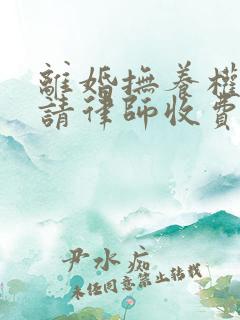 離婚撫養權
請律師收費
尹水痴
未經同意禁止轉載